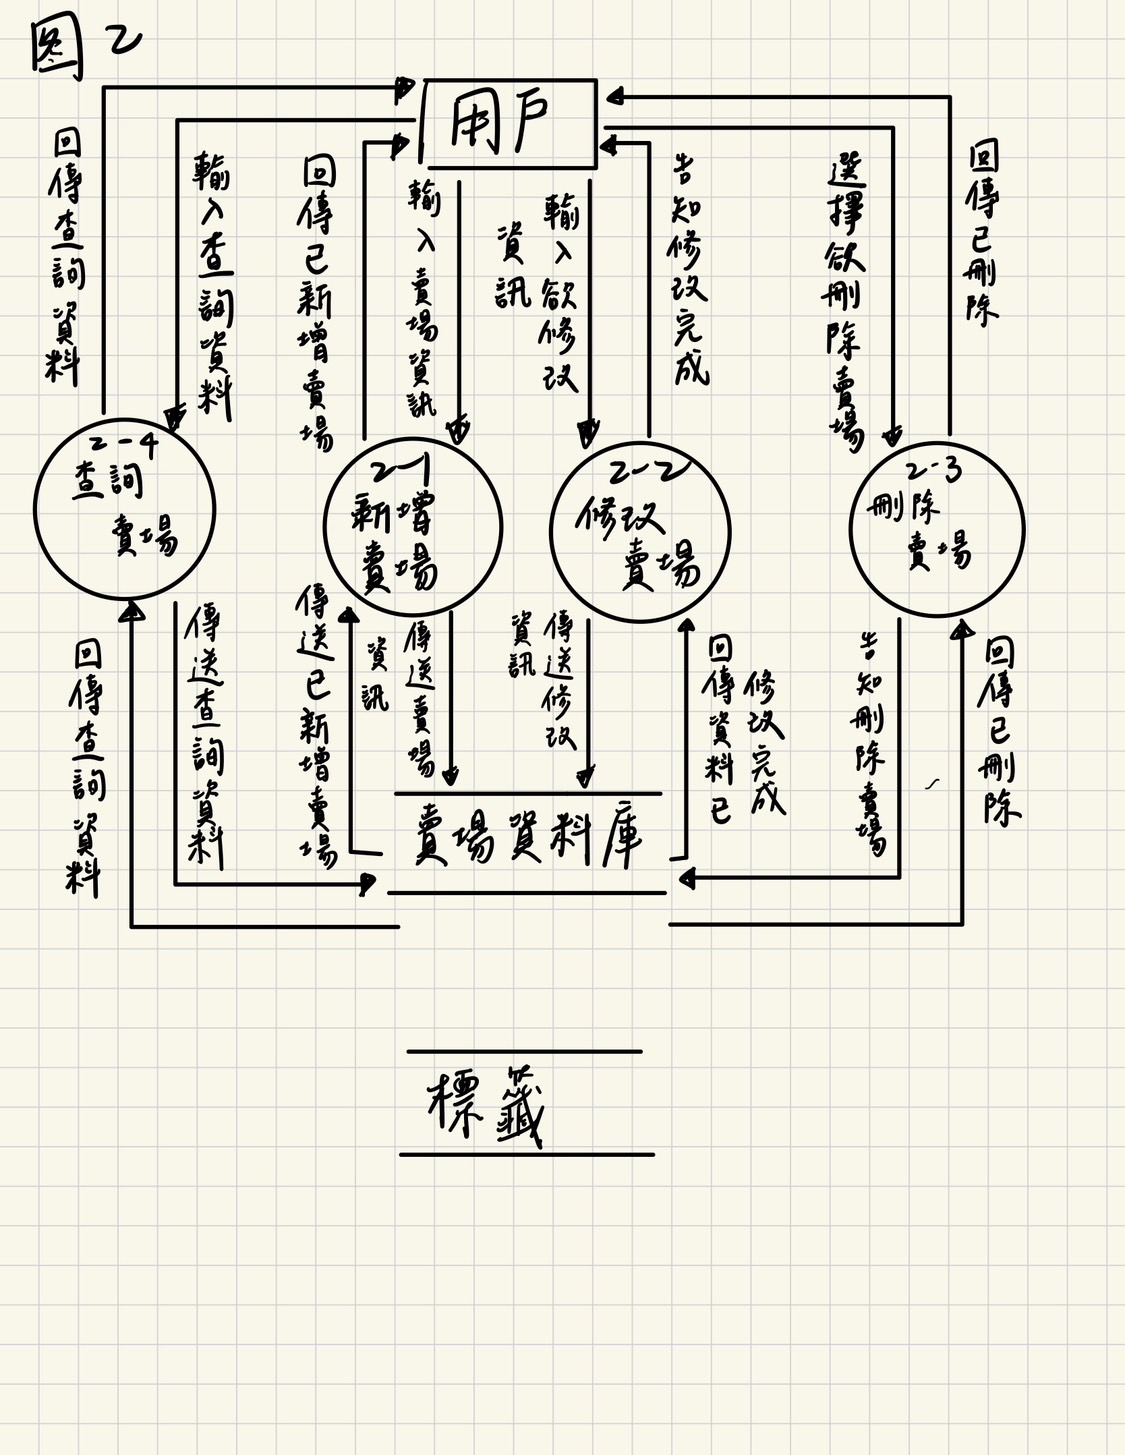 图 2
用戶
回傳查詢資料
輸入查詢資料
回傳已新增賣場
輸入賣場資訊
輸入欲修改
資訊
告知修改完成
選擇欲刪除賣場
回傳已刪除
2-4
查詢
賣場
2-1
新增
賣場
2-2
修改
賣場
2-3
刪除
賣場
回傳查詢資料
傳送查詢資料
傳送已新增賣場
傳送賣場
資訊
傳送修改
資訊
回傳資料已
修改完成
告知刪除賣場
回傳已刪除
賣場資料庫
標籤